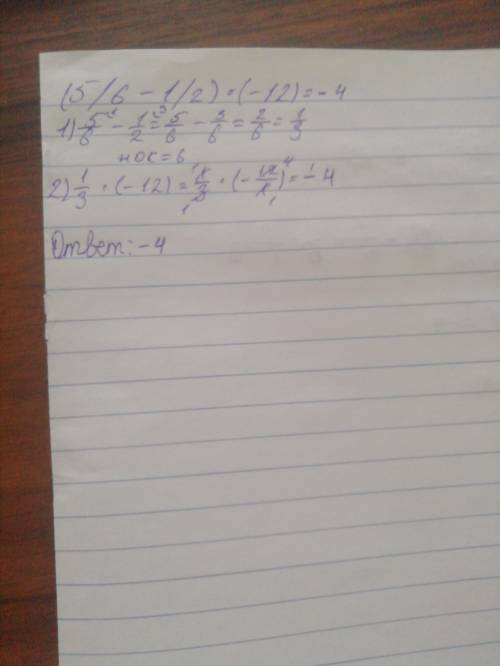 (5/6 - 1/2) · (-12) = -4
1) 5/6 - 1/2 = 5/6 - 3/6 = 2/6 = 1/3
нок = 6
2) 1/3 · (-12) = 1/3 · (-12/1) = -4
Ответ: -4